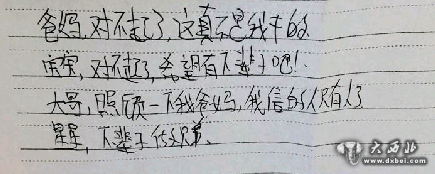 爸妈,对不起了,这真不是我干的
宝宝,对不起了,希望有下辈子吧!
大哥,照顾一下我爸妈,我信的只有你了
星星,下辈子代兄弟、
大西北
www.dxbei.com